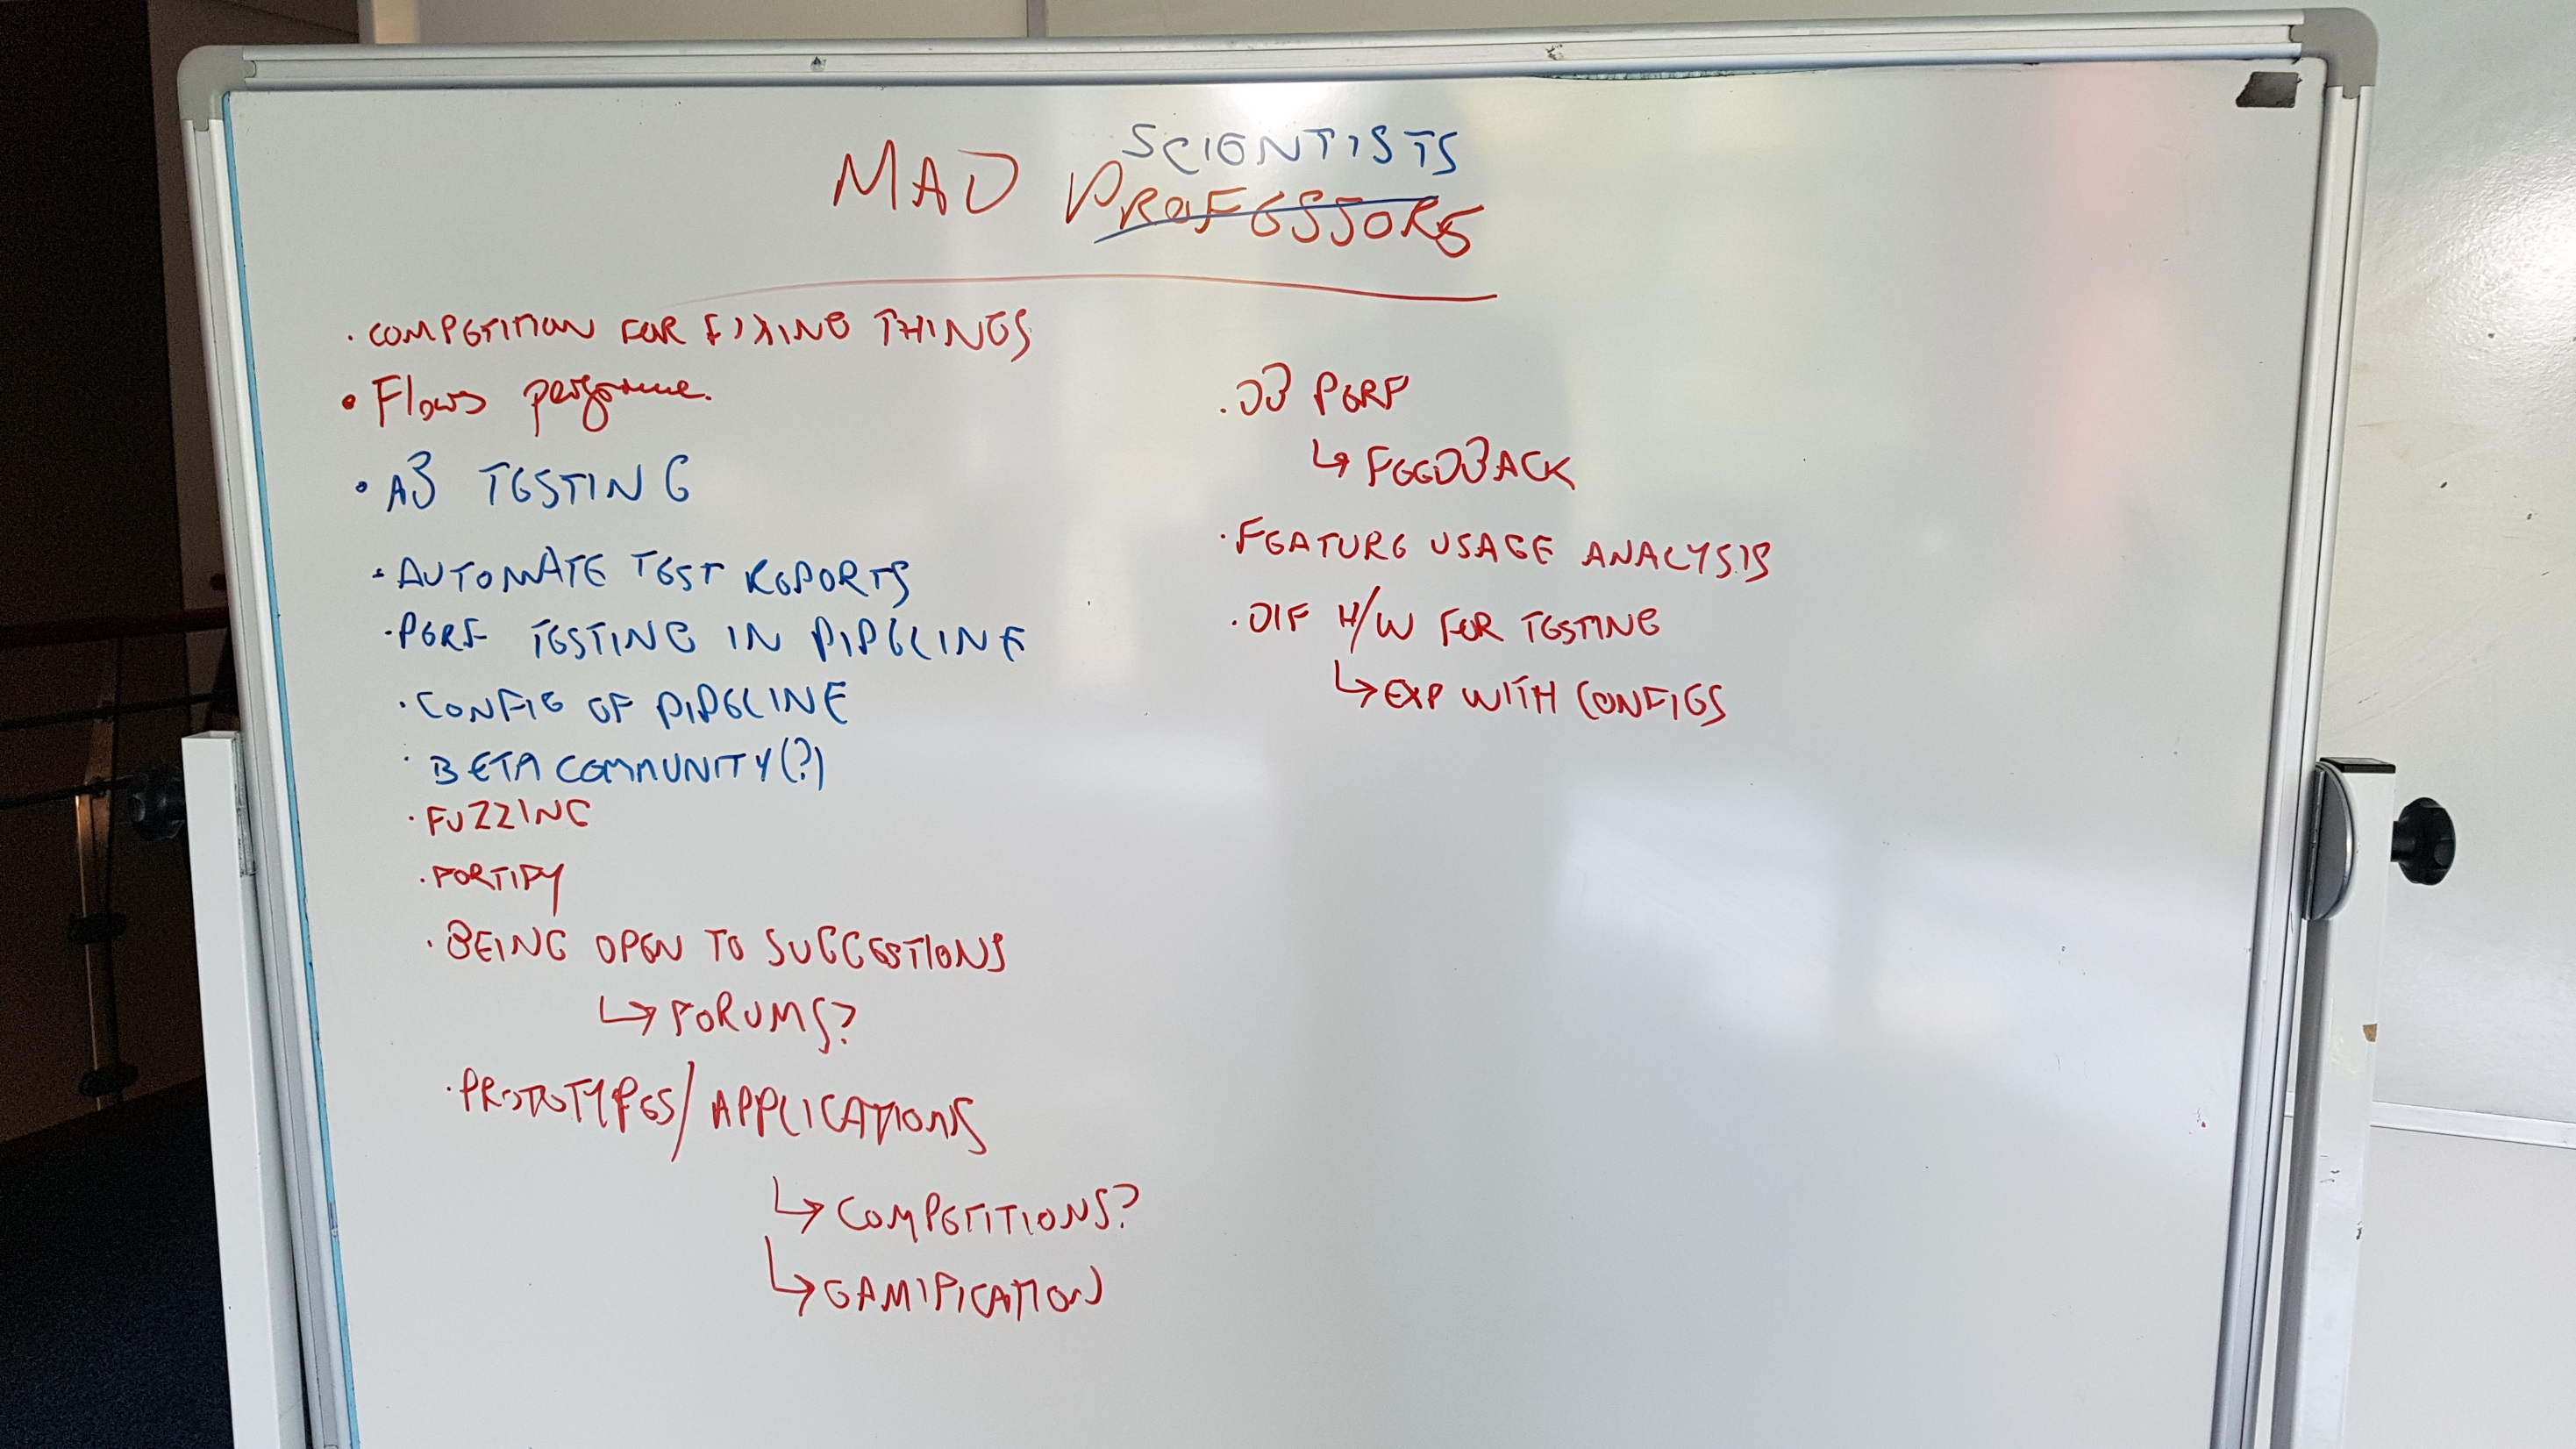 SCIENTISTS
MAD PROFESSORS
· COMPETITION FOR FIXING THINGS
• Flows performe.
• AB TESTING
· AUTOMATE TEST REPORTS
· PERF TESTING IN PIPELINE
· CONFIG OF PIPELINE
· BETA COMMUNITY(?)
· FUZZING
· FORTIFY
· BEING OPEN TO SUGGESTIONS
↳ FORUMS?
· PROTOTYPES/APPLICATIONS
↳ COMPETITIONS?
↳ GAMIFICATION
· DB PERF
↳ FEEDBACK
· FEATURE USAGE ANALYSIS
· DIF H/W FOR TESTING
↳ EXP WITH CONFIGS